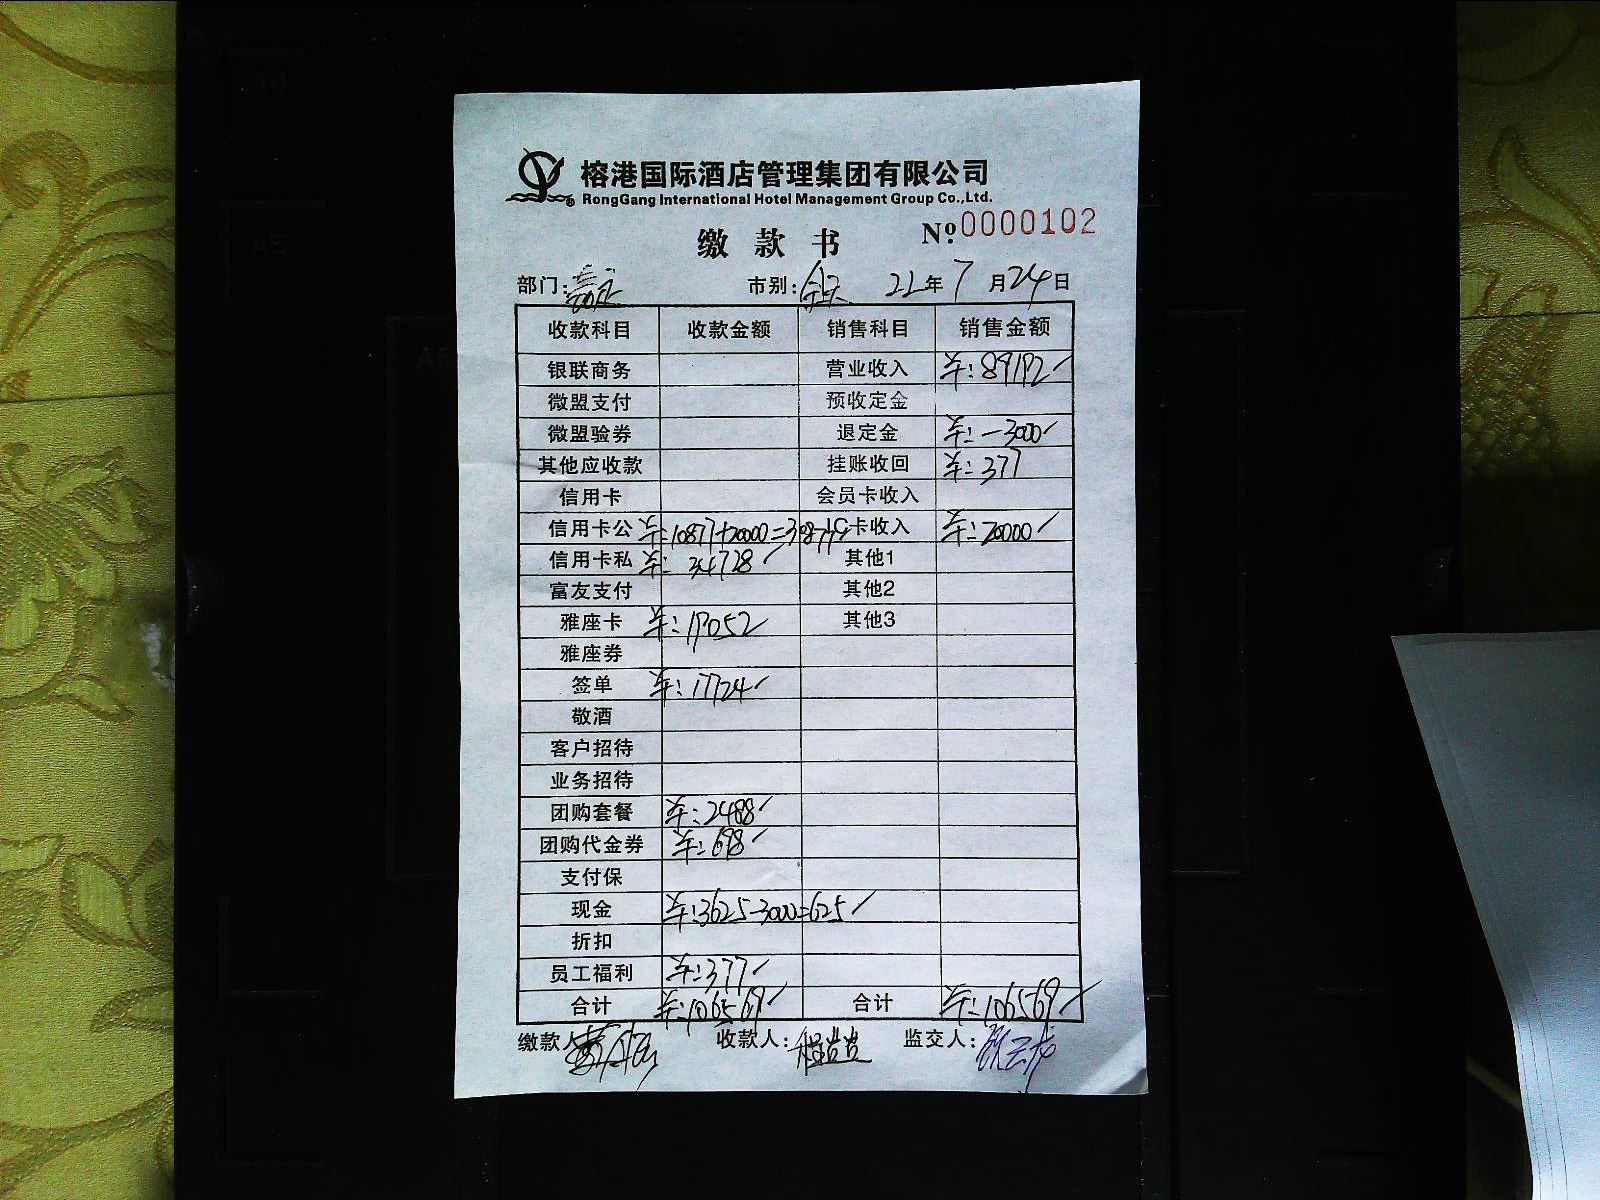 榕港国际酒店管理集团有限公司
RongGang International Hotel Management Group Co.,Ltd.
缴款书 №0000102
部门: 市别:全天 22年7月24日
收款科目 收款金额 销售科目 销售金额
银联商务 营业收入 ¥:89192
微盟支付 预收定金
微盟验券 退定金 ¥:-3000
其他应收款 挂账收回 ¥:377
信用卡 会员卡收入
信用卡公 ¥:10877+20000=30877 IC卡收入 ¥:20000
信用卡私 ¥:34728 其他1
富友支付 其他2
雅座卡 ¥:19052 其他3
雅座券
签单 ¥:17724
敬酒
客户招待
业务招待
团购套餐 ¥:2488
团购代金券 ¥:698
支付保
现金 ¥:3625-3000=625
折扣
员工福利 ¥:377
合计 ¥:106569 合计 ¥:106569
缴款人 收款人: 监交人: